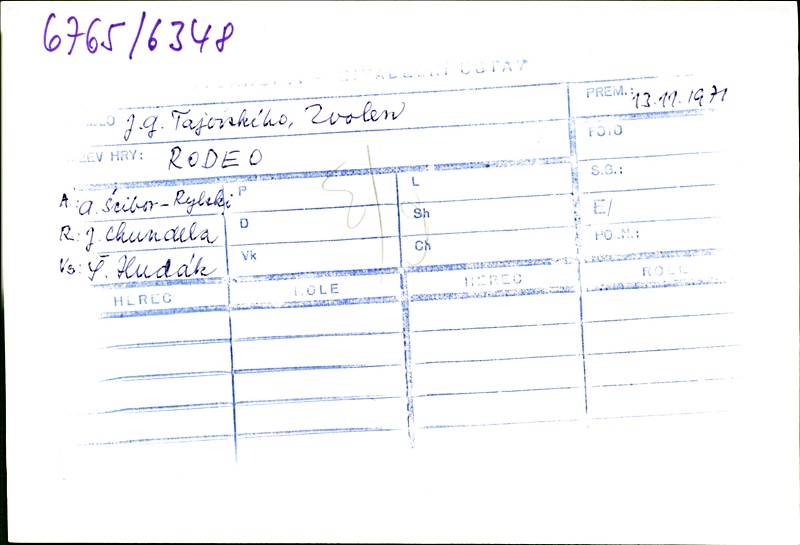 6765/6348
DIVADELNÍ ÚSTAV
J.G. Tajovského, Zvolen PREM.: 13.11.1971
HRY: RODEO FOTO
A: A. Ścibor-Rylski P L S.G.:
R: J. Chundela D Sh E/
Vs: Š. Hudák Vk Ch
HEREC ROLE HEREC ROLE